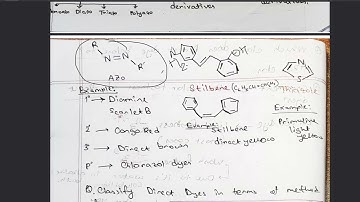 Diazo Triazo Polyazo
derivatives
R
N=N
R'
OH
N
S
Azo
Stilbene (C6H5CH=CHC6H5) Thiazole
Example:
1° → Diamine
Scarlet B
Example:
Primuline
light
yellow
2 → Congo Red
Example:
Stilbene
3 → Direct brown direct yellow
P° → Chlorazol dyes
Q. Classify Direct Dyes in terms of method